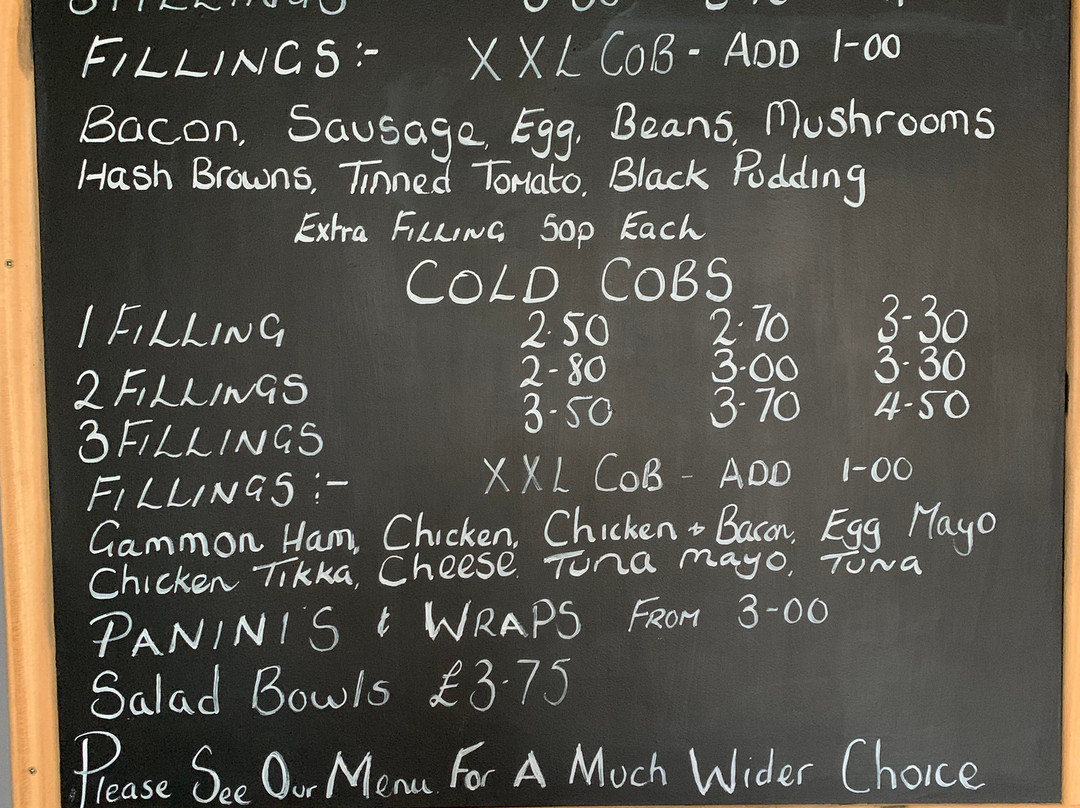 FILLINGS:- XXL COB - ADD 1-00
Bacon, Sausage, Egg, Beans, Mushrooms
Hash Browns, Tinned Tomato, Black Pudding
Extra FILLING 50p Each
COLD COBS
1 FILLING 2·50 2·70 3-30
2 FILLINGS 2-80 3-00 3-30
3 FILLINGS 3-50 3-70 4-50
FILLINGS:- XXL COB - ADD 1-00
Gammon Ham, Chicken, Chicken + Bacon, Egg Mayo
Chicken Tikka, Cheese, Tuna mayo, Tuna
PANINI'S & WRAPS FROM 3-00
Salad Bowls £3-75
Please See Our Menu For A Much Wider Choice